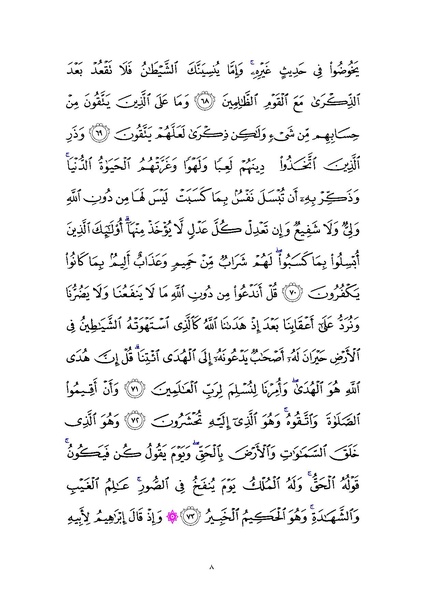 يَخُوضُوا۟ فِى حَدِيثٍ غَيْرِهِۦ ۚ وَإِمَّا يُنسِيَنَّكَ ٱلشَّيْطَـٰنُ فَلَا تَقْعُدْ بَعْدَ
ٱلذِّكْرَىٰ مَعَ ٱلْقَوْمِ ٱلظَّـٰلِمِينَ ﴿٦٨﴾ وَمَا عَلَى ٱلَّذِينَ يَتَّقُونَ مِنْ
حِسَابِهِم مِّن شَىْءٍ وَلَـٰكِن ذِكْرَىٰ لَعَلَّهُمْ يَتَّقُونَ ﴿٦٩﴾ وَذَرِ
ٱلَّذِينَ ٱتَّخَذُوا۟ دِينَهُمْ لَعِبًا وَلَهْوًا وَغَرَّتْهُمُ ٱلْحَيَوٰةُ ٱلدُّنْيَا ۚ
وَذَكِّرْ بِهِۦٓ أَن تُبْسَلَ نَفْسٌۢ بِمَا كَسَبَتْ لَيْسَ لَهَا مِن دُونِ ٱللَّهِ
وَلِىٌّ وَلَا شَفِيعٌ وَإِن تَعْدِلْ كُلَّ عَدْلٍ لَّا يُؤْخَذْ مِنْهَآ ۗ أُو۟لَـٰٓئِكَ ٱلَّذِينَ
أُبْسِلُوا۟ بِمَا كَسَبُوا۟ ۖ لَهُمْ شَرَابٌ مِّنْ حَمِيمٍ وَعَذَابٌ أَلِيمٌۢ بِمَا كَانُوا۟
يَكْفُرُونَ ﴿٧٠﴾ قُلْ أَنَدْعُوا۟ مِن دُونِ ٱللَّهِ مَا لَا يَنفَعُنَا وَلَا يَضُرُّنَا
وَنُرَدُّ عَلَىٰٓ أَعْقَابِنَا بَعْدَ إِذْ هَدَىٰنَا ٱللَّهُ كَٱلَّذِى ٱسْتَهْوَتْهُ ٱلشَّيَـٰطِينُ فِى
ٱلْأَرْضِ حَيْرَانَ لَهُۥٓ أَصْحَـٰبٌ يَدْعُونَهُۥٓ إِلَى ٱلْهُدَى ٱئْتِنَا ۗ قُلْ إِنَّ هُدَى
ٱللَّهِ هُوَ ٱلْهُدَىٰ ۖ وَأُمِرْنَا لِنُسْلِمَ لِرَبِّ ٱلْعَـٰلَمِينَ ﴿٧١﴾ وَأَنْ أَقِيمُوا۟
ٱلصَّلَوٰةَ وَٱتَّقُوهُ ۚ وَهُوَ ٱلَّذِىٓ إِلَيْهِ تُحْشَرُونَ ﴿٧٢﴾ وَهُوَ ٱلَّذِى
خَلَقَ ٱلسَّمَـٰوَٰتِ وَٱلْأَرْضَ بِٱلْحَقِّ ۖ وَيَوْمَ يَقُولُ كُن فَيَكُونُ ۚ
قَوْلُهُ ٱلْحَقُّ ۚ وَلَهُ ٱلْمُلْكُ يَوْمَ يُنفَخُ فِى ٱلصُّورِ ۚ عَـٰلِمُ ٱلْغَيْبِ
وَٱلشَّهَـٰدَةِ ۚ وَهُوَ ٱلْحَكِيمُ ٱلْخَبِيرُ ﴿٧٣﴾ ۞ وَإِذْ قَالَ إِبْرَٰهِيمُ لِأَبِيهِ
٨